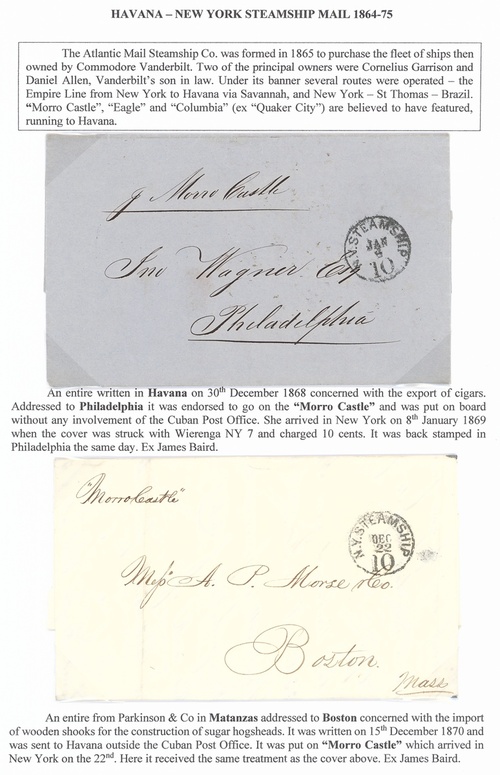 HAVANA – NEW YORK STEAMSHIP MAIL 1864-75
The Atlantic Mail Steamship Co. was formed in 1865 to purchase the fleet of ships then
owned by Commodore Vanderbilt. Two of the principal owners were Cornelius Garrison and
Daniel Allen, Vanderbilt's son in law. Under its banner several routes were operated – the
Empire Line from New York to Havana via Savannah, and New York – St Thomas – Brazil.
"Morro Castle", "Eagle" and "Columbia" (ex "Quaker City") are believed to have featured,
running to Havana.
Morro Castle
N.Y. STEAMSHIP
JAN
10
Jno Wagner Esq
Philadelphia
An entire written in Havana on 30th December 1868 concerned with the export of cigars.
Addressed to Philadelphia it was endorsed to go on the "Morro Castle" and was put on board
without any involvement of the Cuban Post Office. She arrived in New York on 8th January 1869
when the cover was struck with Wierenga NY 7 and charged 10 cents. It was back stamped in
Philadelphia the same day. Ex James Baird.
"Morro Castle"
N.Y. STEAMSHIP
DEC
22
10
Mess A. P. Morse & Co.
Boston.
Mass
An entire from Parkinson & Co in Matanzas addressed to Boston concerned with the import
of wooden shooks for the construction of sugar hogsheads. It was written on 15th December 1870 and
was sent to Havana outside the Cuban Post Office. It was put on "Morro Castle" which arrived in
New York on the 22nd. Here it received the same treatment as the cover above. Ex James Baird.